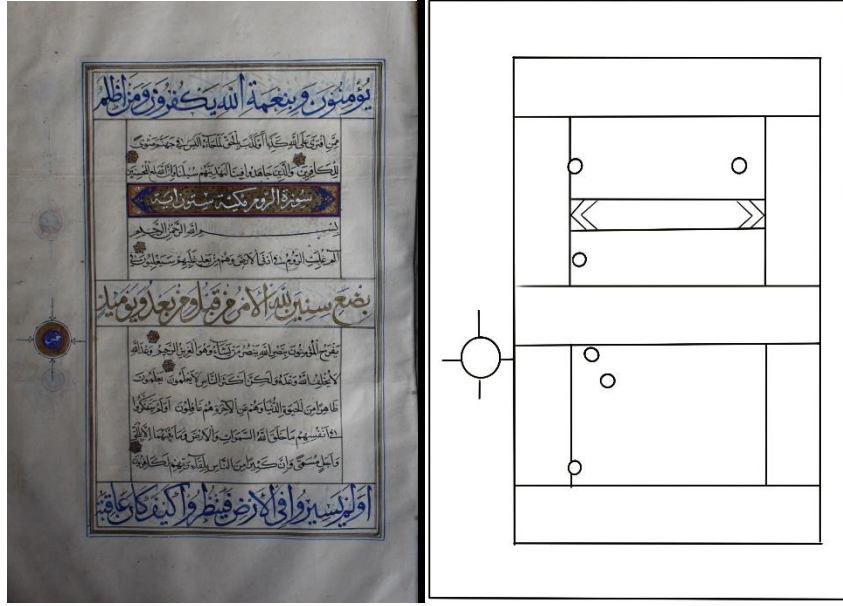 يؤمنون وبنعمة الله يكفرون ومن اظلم
ممن افترى على الله كذبا او كذب بالحق لما جاءه اليس في جهنم مثوى
للكافرين والذين جاهدوا فينا لنهدينهم سبلنا وان الله لمع المحسنين
سورة الروم مكية ستون اية
بسم الله الرحمن الرحيم
الم غلبت الروم في ادنى الارض وهم من بعد غلبهم سيغلبون في
بضع سنين لله الامر من قبل ومن بعد ويومئذ
يفرح المؤمنون بنصر الله ينصر من يشاء وهو العزيز الرحيم وعد الله
لا يخلف الله وعده ولكن اكثر الناس لا يعلمون يعلمون
ظاهرا من الحيوة الدنيا وهم عن الاخرة هم غافلون اولم يتفكروا
في انفسهم ما خلق الله السموات والارض وما بينهما الا بالحق
واجل مسمى وان كثيرا من الناس بلقاء ربهم لكافرون
اولم يسيروا في الارض فينظروا كيف كان عاقبة